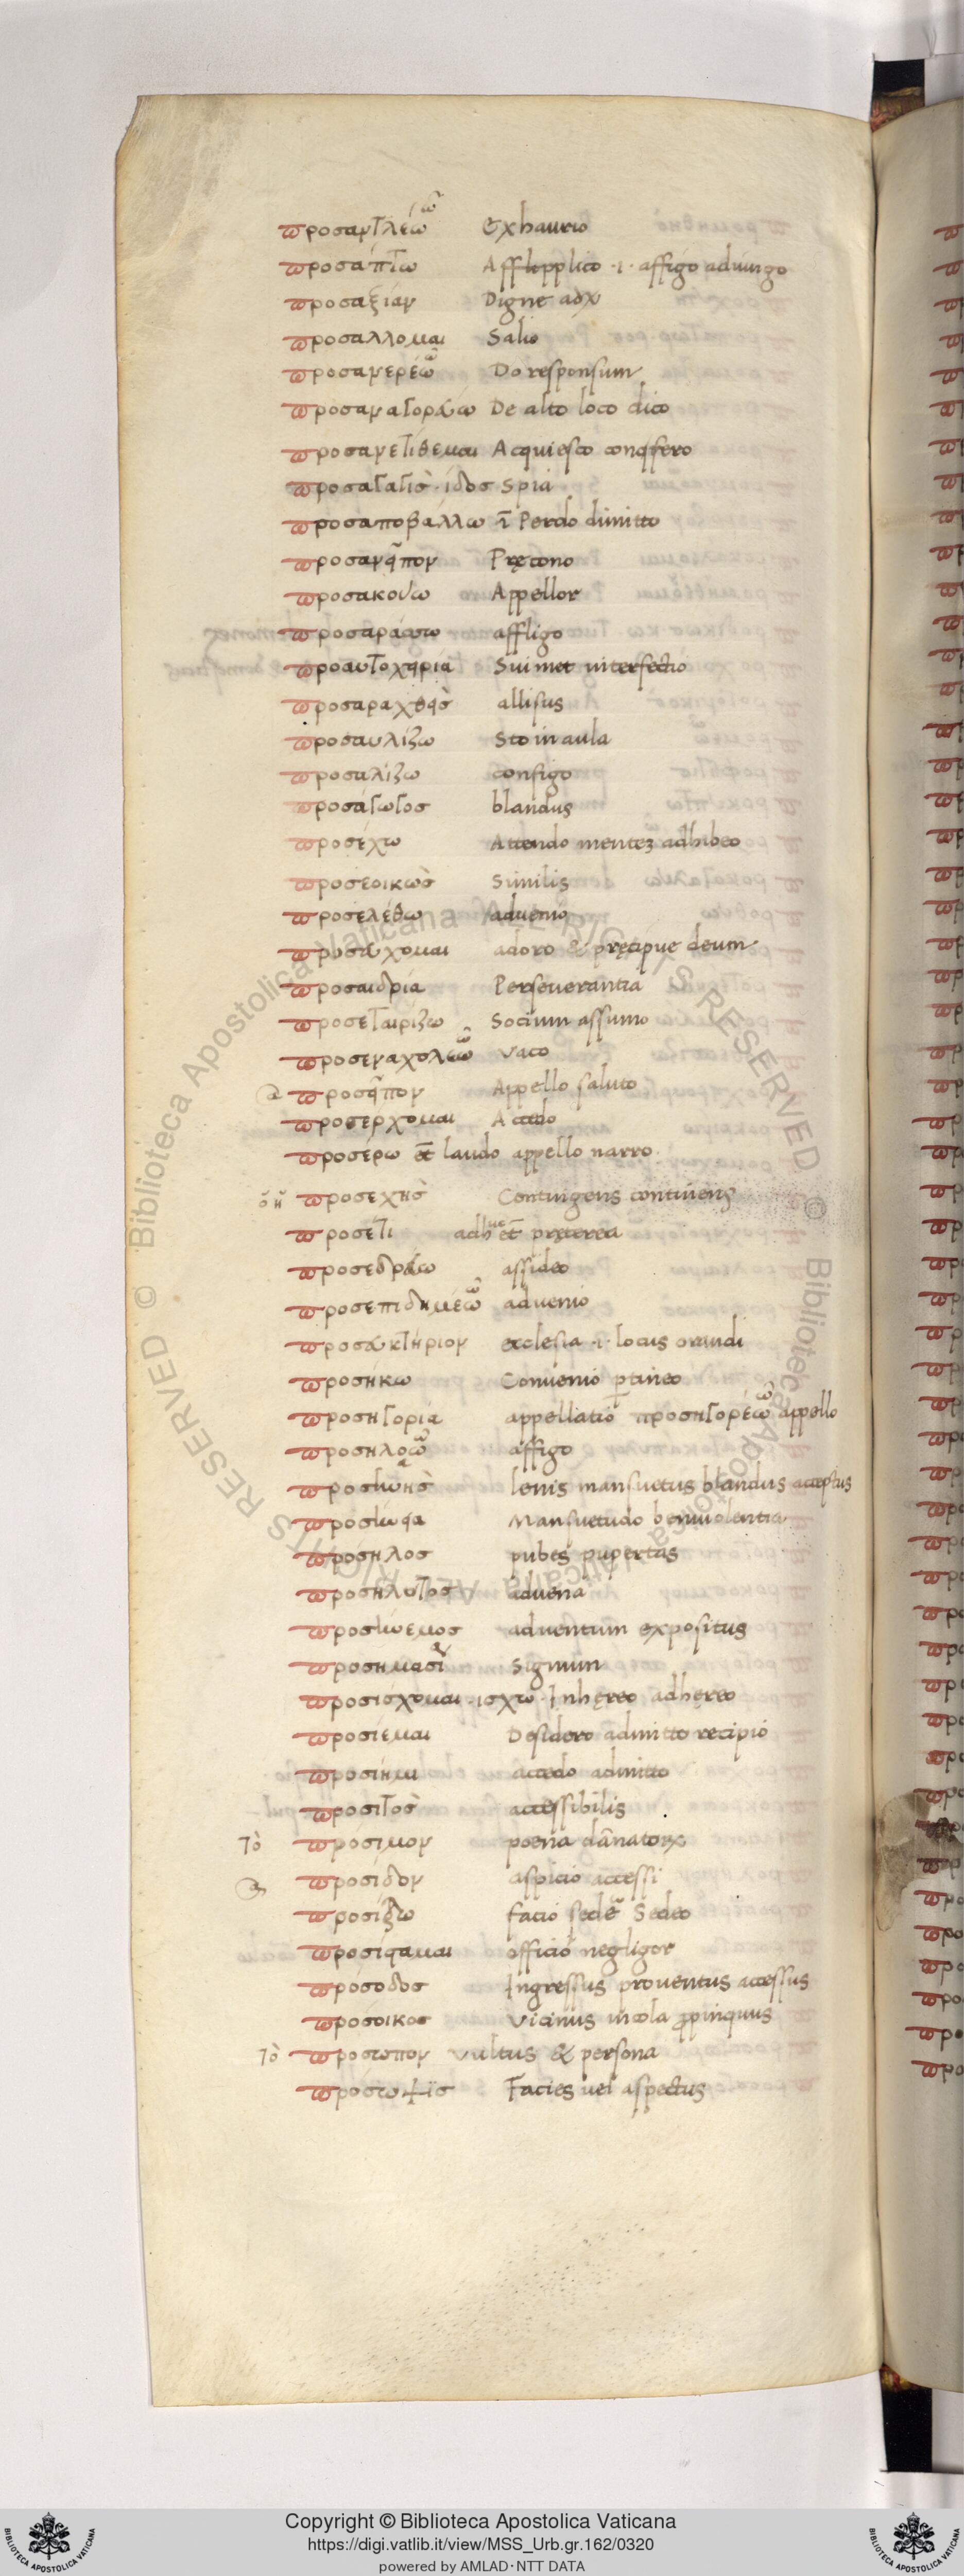 προσαντλέω ῶ Exhaurio
προσάπτω Affligo applico ·i· affigo adiungo
προσαξίαν Digne adv
προσάλλομαι Salio
προσανερέω ῶ Do responsum
προσαναγορεύω De alto loco dico
προσανετίθεμαι Acquiesco confero
προσαγατίς · ίδος Spia
προσαποβάλλω Perdo dimitto
προσανεῖπον Pręcono
προσακούω Appellor
προσαράσσω affligo
προαυτοχειρία Suimet interfectio
προσαραχθείς allisus
προσαυλίζω Sto in aula
προσαλίζω configo
προσάγωγος blandus
προσέχω Attendo mentez adhibeo
προσεοικώς Similis
προσελέθω advenio
προσεύχομαι adoro & pręcipue deum
προσαιδρία Perseverantia
προσεταιρίζω Socium assumo
προσεναχολέω ῶ vaco
προσεῖπον Appello saluto
προσέρχομαι Accedo
προσερῶ et laudo appello narro
ὁ ἡ προσεχής Contingens continens
προσέτι adhuc et pręterea
προσεδρεύω assideo
προσεπιδημέω ῶ advenio
προσευκτήριον ecclesia ·i· locus orandi
προσήκω Convenio ptineo
προσηγορία appellatio προσηγορέω ῶ appello
προσηλόω ῶ affigo
προσηνής lenis mansuetus blandus acceptus
προσήνεια Mansuetudo benivolentia
προσηλος pubes pupertas
προσήλυτος advena
προσήνεμος adventum expositus
προσημασία Signum
προσίσχομαι · ισχω · Inhęreo adhereo
προσίεμαι Desidero admitto recipio
προσίημι accedo admitto
προσιτός accessibilis
τὸ πρόσιμον poena damnatorum
προσίδον aspicio accessi
προσίζω facio sedē Sedeo
προσίεμαι officio negligor
πρόσοδος Ingressus proventus accessus
πρόσοικος Vicinus incola ppinquus
τὸ πρόσωπον vultus & persona
πρόσωψις Facies vel aspectus
Copyright © Biblioteca Apostolica Vaticana
https://digi.vatlib.it/view/MSS_Urb.gr.162/0320
powered by AMLAD·NTT DATA